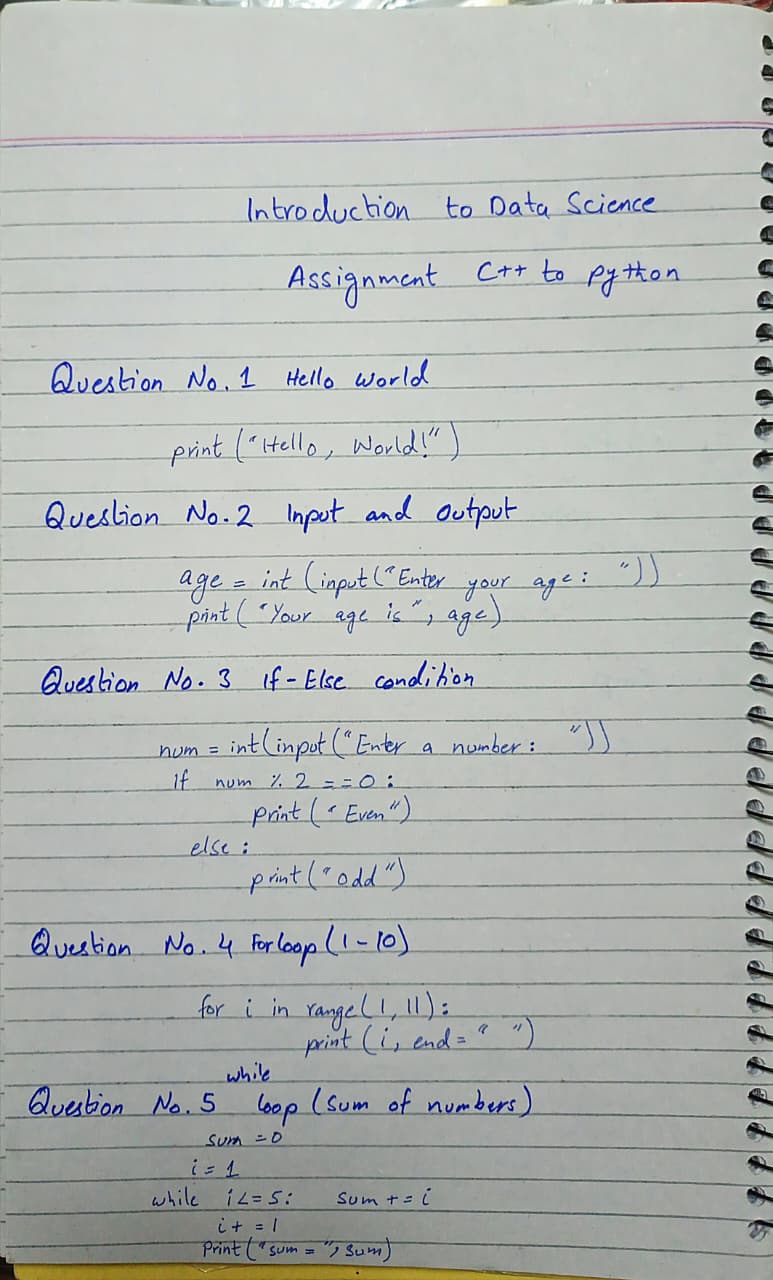 Introduction to Data Science
Assignment C++ to python
Question No. 1 Hello world
print ("Hello, World!")
Question No. 2 Input and Output
age = int (input ("Enter your age: "))
print ("Your age is", age)
Question No. 3 If-Else condition
num = int(input ("Enter a number: "))
If num % 2 == 0:
print ("Even")
else:
print ("odd")
Question No. 4 For loop (1-10)
for i in range(1, 11):
print (i, end = " ")
while
Question No. 5 loop (sum of numbers)
sum = 0
i = 1
while i <= 5: sum += i
i + = 1
Print ("sum = ", sum)